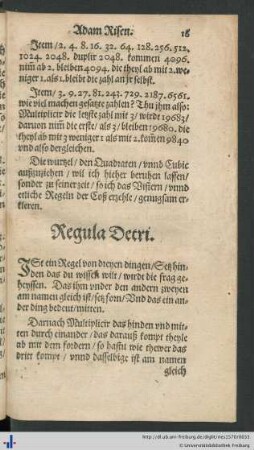 Adam Risen. 18
Item/ 2. 4. 8. 16. 32. 64. 128. 256. 512.
1024. 2048. duplir 2048. kommen 4096.
nim̃ ab 2. bleiben 4094. die theyl ab mit 2. we-
niger 1. als 1. bleibt die zahl an jr selbst.
Item/ 3. 9. 27. 81. 243. 729. 2187. 6561.
wie viel machen gesatzte zahlen? Thu jhm also:
Multiplicir die letzte zahl mit 3/ wirdt 19683/
daruon nim̃ die erste/ als 3/ bleiben 19680. die
theyl ab mit 3 weniger 1 als mit 2. kom̃en 9840
vnd also dergleichen.
Die wurtzel/ den Quadraten/ vnnd Cubic
außzuziehen/ wil ich hieher beruhen lassen/
sonder zu seiner zeit/ so ich das Visiern/ vnnd
etliche Regeln der Coß erzehle/ genugsam er-
kleren.
Regula Detri.
ISt ein Regel von dreyen dingen/ Setz hin-
den das du wissen wilt/ wirdt die frag ge-
heyssen. Das jhm vnder den andern zweyen
am namen gleich ist/ setz forn/ Vnd das ein an-
der ding bedeut/ mitten.
Darnach Multiplicir das hinden vnd mit-
ten durch einander/ das darauß kompt theyle
ab mit dem fordern/ so hastu wie thewer das
drit kompt/ vnnd dasselbige ist am namen
gleich
http://dl.ub.uni-freiburg.de/diglit/
© Universitätsbibliothek Freiburg
UNI
FREIBURG